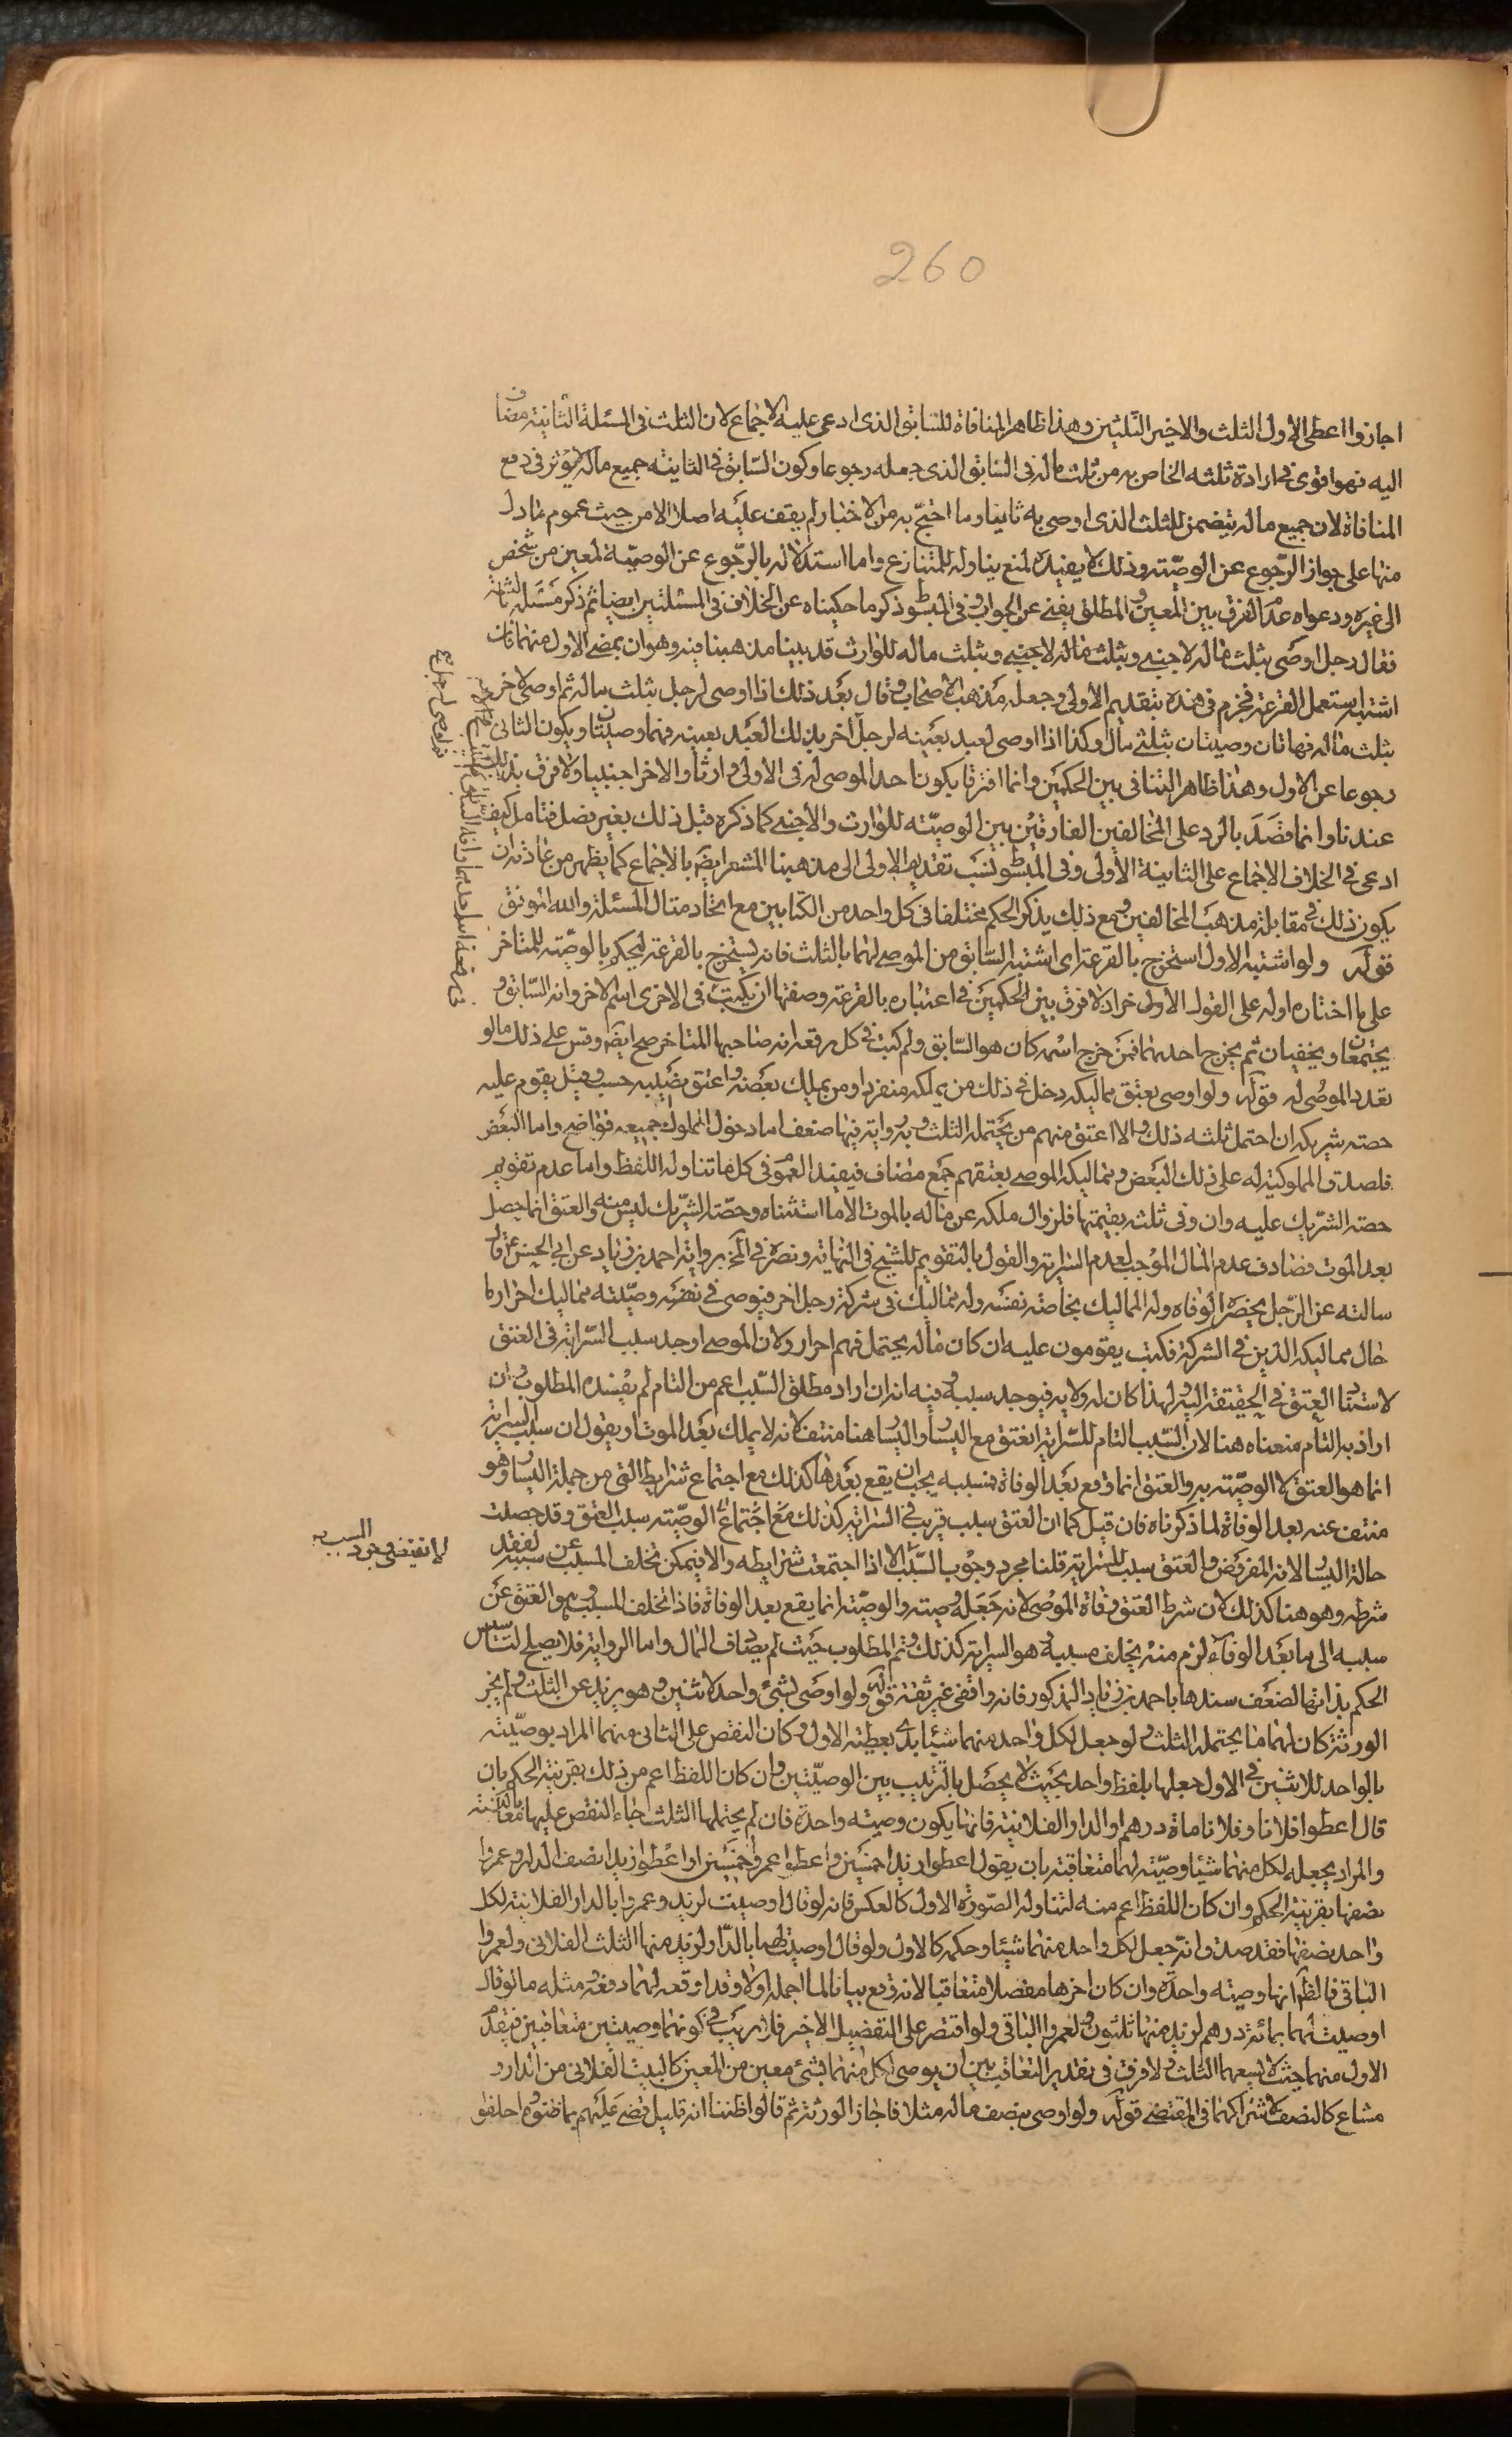 260
اجازوا اعطى الاول الثلث والاخير الثلثين وهذا ظاهر المنافاة للسّابق الذى ادعى عليه الاجماع لان الثلث فى المسئلة الثانية مضاف
اليه فهو اقوى فى ارادة ثلثه الخاص به من ثلث ماله فى السّابق الذى جعله رجوعا وكون السّابق فى الثانية جميع ماله لا يؤثر فى دفع
المنافاة لان جميع ماله يتضمن الثلث الذى اوصى به ثانيا وما احتجّ به من الاخبار لم يقف عليه اصلا الا من حيث عموم ما دل
منها على جواز الرّجوع عن الوصيّة وذلك لا يفيده لمنع تناوله للمتنازع واما استدلاله بالرّجوع عن الوصيّة لمعين من شخص
الى غيره ودعواه عدم الفرق بين المعين والمطلق يغنى عن الجواب وفى المبسوط ذكر ما حكيناه عن الخلاف فى المسئلتين ايضا ثم ذكر مسئلة ثالثة
فقال رجل اوصى بثلث ماله لاجنبى وبثلث ماله لاجنبى وبثلث ماله للوارث قد بينا مذهبنا فيه وهو ان يمضى الاول منهما فان
اشتبه استعمل القرعة فجزم فى هذه بتقديم الاولى وجعله مذهب الاصحاب وقال بعد ذلك اذا اوصى لرجل بثلث ماله ثم اوصى لاخر
بثلث ماله فهاتان وصيتان بثلثى ماله وكذا اذا اوصى لعبد بعينه لرجل اخر بذلك العبد بعينه فهما وصيتان ويكون الثانى
رجوعا عن الاول وهذا ظاهر التنافى بين الحكمين وانما افترقا بكون احد الموصى له فى الاولى وارثا والاخر اجنبيا ولا فرق بذلك
عندنا وانما قصد بالرد على المخالفين الفارقين بين الوصيّة للوارث والأجنبى كما ذكره قبل ذلك بغير فصل فتامل كيف
ادعى فى الخلاف الاجماع على الثانية الأولى وفى المبسوط نسب تقديم الاولى الى مذهبنا المشعر ايضا بالاجماع كما يظهر من عادته ان
يكون ذلك فى مقابلة مذهب المخالفين ومع ذلك يذكر الحكم مختلفا فى كل واحد من الكتابين مع اتحاد مثال المسئلة والله الموفق
قوله ولو اشتبه الاول استخرج بالقرعة اى اشتبه السّابق من الموصى لهما بالثلث فانه يستخرج بالقرعة ليحكم بالوصيّة للمتاخر
على ما اختاره اوله على القول الأول خر اذ لا فرق بين الحكمين فى اعتباره بالقرعة وصفتها ان يكتب فى الاخرى اسم الاخر وانه السّابق و
يجتمعان ويخفيان ثم يخرج احديهما فمن خرج اسمه كان هو السّابق ولو كتب فى كل رقعة انه صاحبها المتاخر صح ايضا وقس على ذلك ما لو
تعدد الموصى له قوله ولو اوصى بعتق مماليكه دخل فى ذلك من يملكه منفردا ومن يملك بعضه واعتق نصيبه حسب وقيل يقوم عليه
حصته شريكه ان احتمل ثلثه ذلك والا اعتق منهم من يحتمله الثلث وبه رواية فيها ضعف اما دخول المملوك جميعه فواضح واما البعض
فلصدق المملوكية له على ذلك البعض ومماليكه الموصى بعتقهم جمع مضاف فيفيد العموم فى كل ما تناوله اللفظ واما عدم تقويم
حصة الشريك عليه وان وفى ثلثه بقيمتها فلزوال ملكه عن ماله بالموت الا ما استثناه وحصّة الشريك ليس منه والعتق انما يحصل
بعد الموت فصادف عدم المال الموجب لعدم السّراية والقول بالتقويم للشيخ فى النهاية ونصره فى المخ برواية احمد بن زياد عن ابى الحسن ع قال
سالته عن الرّجل يحضره الوفاه وله المماليك بخاصة نفسه وله مماليك فى شركة رجل اخر فيوصى فى نفسه وصيّته مماليك احرار ما
حال مماليكه الذين فى الشركة فكتب يقومون عليه ان كان ماله يحتمل فهم احرار ولان الموصى اوجد سبب السّراية فى العتق
لاستناد العتق فى الحقيقة اليه ولهذا كان له ولايه فيوجد سببه وفيه انه ان اراد مطلق السّبب اعم من التام لم يفسده المطلوب وان
اراد به التام منعناه هنا لان السّبب التام للسّراية العتق مع اليسار واليسار هنا منتف لانه لا يملك بعد الموت او يقول ان سبب السراية
انما هو العتق لا الوصيّة به والعتق انما وقع بعد الوفاة فسببه يجب ان يقع بعدها كذلك مع اجتماع شرايطه التى من جملة اليسار وهو
منتف عنه بعد الوفاة لما ذكرناه فان قيل كما ان العتق سبب قريب فى السّراية كذلك مع اجتماع الوصيّة سبب العتق وقد حصلت
حالة اليسار لانه المفروض والعتق سبب للسّراية قلنا مجرد وجوب السّبب الا اذا اجتمعت شرايطه والا فيمكن تخلف المسبب عن سببه لفقد
شرطه وهو هنا كذلك لان شرط العتق وفاة الموصى لانه جعله وصيته والوصيّة انما يقع بعد الوفاة فاذا تخلف المسبب وهو العتق عن
سببه الى ما بعد الوفاء لزم منه تخلف مسببه وهو السراية كذلك وتم المطلوب حيث لم يصادف المال واما الرواية فلا يصلح لتاسيس
الحكم بذاتها لضعف سندها باحمد بن زياد المذكور فانه واقفى غير ثقة قوله ولو اوصى بشئ واحد لاثنين وهو يزيد عن الثلث ولم يجز
الورثة كان لهما ما يحتمله الثلث ولو جعل لكل واحد منهما شيئا بدئ بعطية الاول وكان النقص على الثانى منهما المراد بوصيّته
بالواحد للاثنين فى الاول جعلها بلفظ واحد بحيث لا يحصل بالترتيب بين الوصيّتين وان كان اللفظ اعم من ذلك بقرينة الحكم بان
قال اعطوا فلانا وفلانا مأة درهم او الدار الفلانية فانها يكون وصيته واحدة فان لم يحتملها الثلث جاء النقص عليهما معا بالنسبة
والمراد بجعله لكل منهما شيئا وصيّته لهما متعاقبة بان يقول اعطوا زيدا خمسين واعطوا عمروا خمسين او اعطوا زيدا نصف الدار وعمروا
نصفها بقرينة الحكم وان كان اللفظ اعم منه لتناوله الصّورة الاول كالعكس فانه لو قال اوصيت لزيد وعمروا بالدار الفلانية لكل
واحد نصفها فقد صدق انّه جعل لكل واحد منهما شيئا وحكمه كالاول ولو قال اوصيت لهما بالدار ولزيد منها الثلث الفلانى ولعمروا
الباقى فالظّ انها وصيته واحدة وان كان اخرها مفصلا متعاقبا لانه وقع بيانا لما اجمله اولا وقد اوقعه لهما دفعة ومثله ما لو قال
اوصيت لهما بمائة درهم لزيد منها ثلثون ولعمروا الباقى ولو اقتصر على التفصيل الاخير فلا ريب فى كونهما وصيتين متعاقبتين فيقدّم
الاول منهما حيث لا يسعهما الثلث ولا فرق فى تقدير التعاقب بين ان يوصى لكل منهما بشئ معين من المعين كالبيت الفلانى من الدار و
مشاع كالنصف لاشتراكهما فى المقتضى قوله ولو اوصى بنصف ماله مثلا فاجاز الورثة ثم قالوا ظننا انه قليل قضى عليهم بما ظنوه واحلفو
لا تقتضى وجود السبب